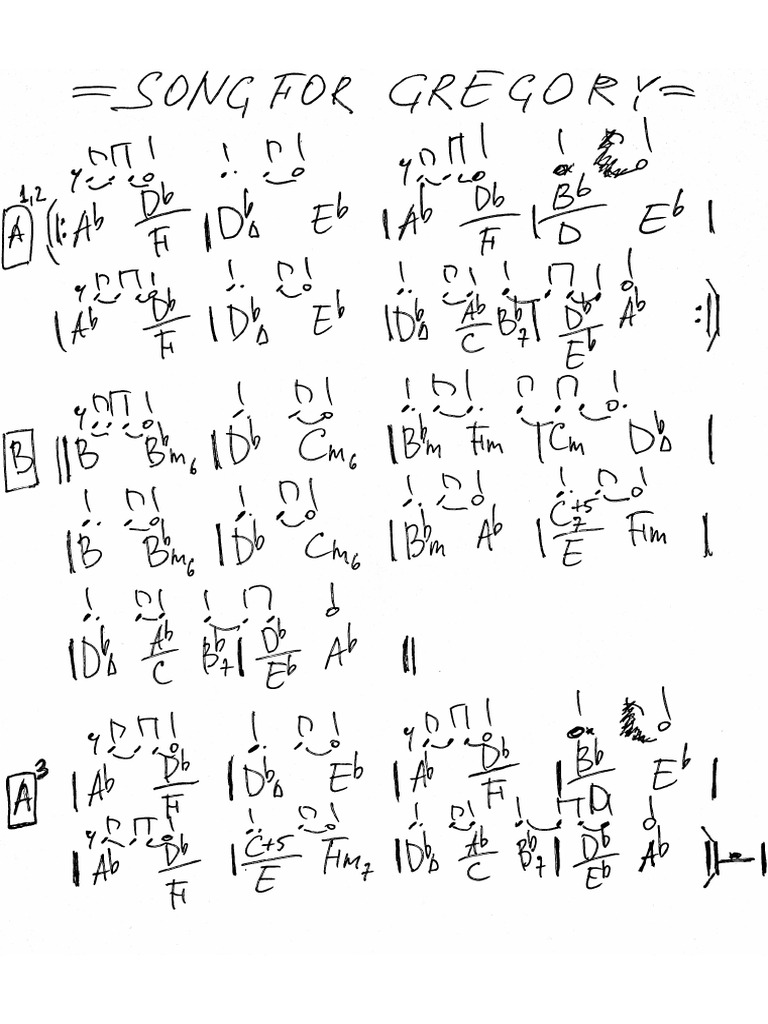 = SONG FOR GREGORY =
A 1,2 (|: Ab Db/F | DbΔ Eb | Ab Db/F | Bb/D Eb |
| Ab Db/F | DbΔ Eb | DbΔ Ab/C Bb7 | Db/Eb Ab :|)
B || B Bbm6 | Db Cm6 | Bbm Fm | Cm DbΔ |
| B Bbm6 | Db Cm6 | Bbm Ab | C7+5/E Fm |
| DbΔ Ab/C Bb7 | Db/Eb Ab ||
A 3 | Ab Db/F | DbΔ Eb | Ab Db/F | Bb/D Eb |
| Ab Db/F | C+5/E Fm7 | DbΔ Ab/C Bb7 | Db/Eb Ab ||